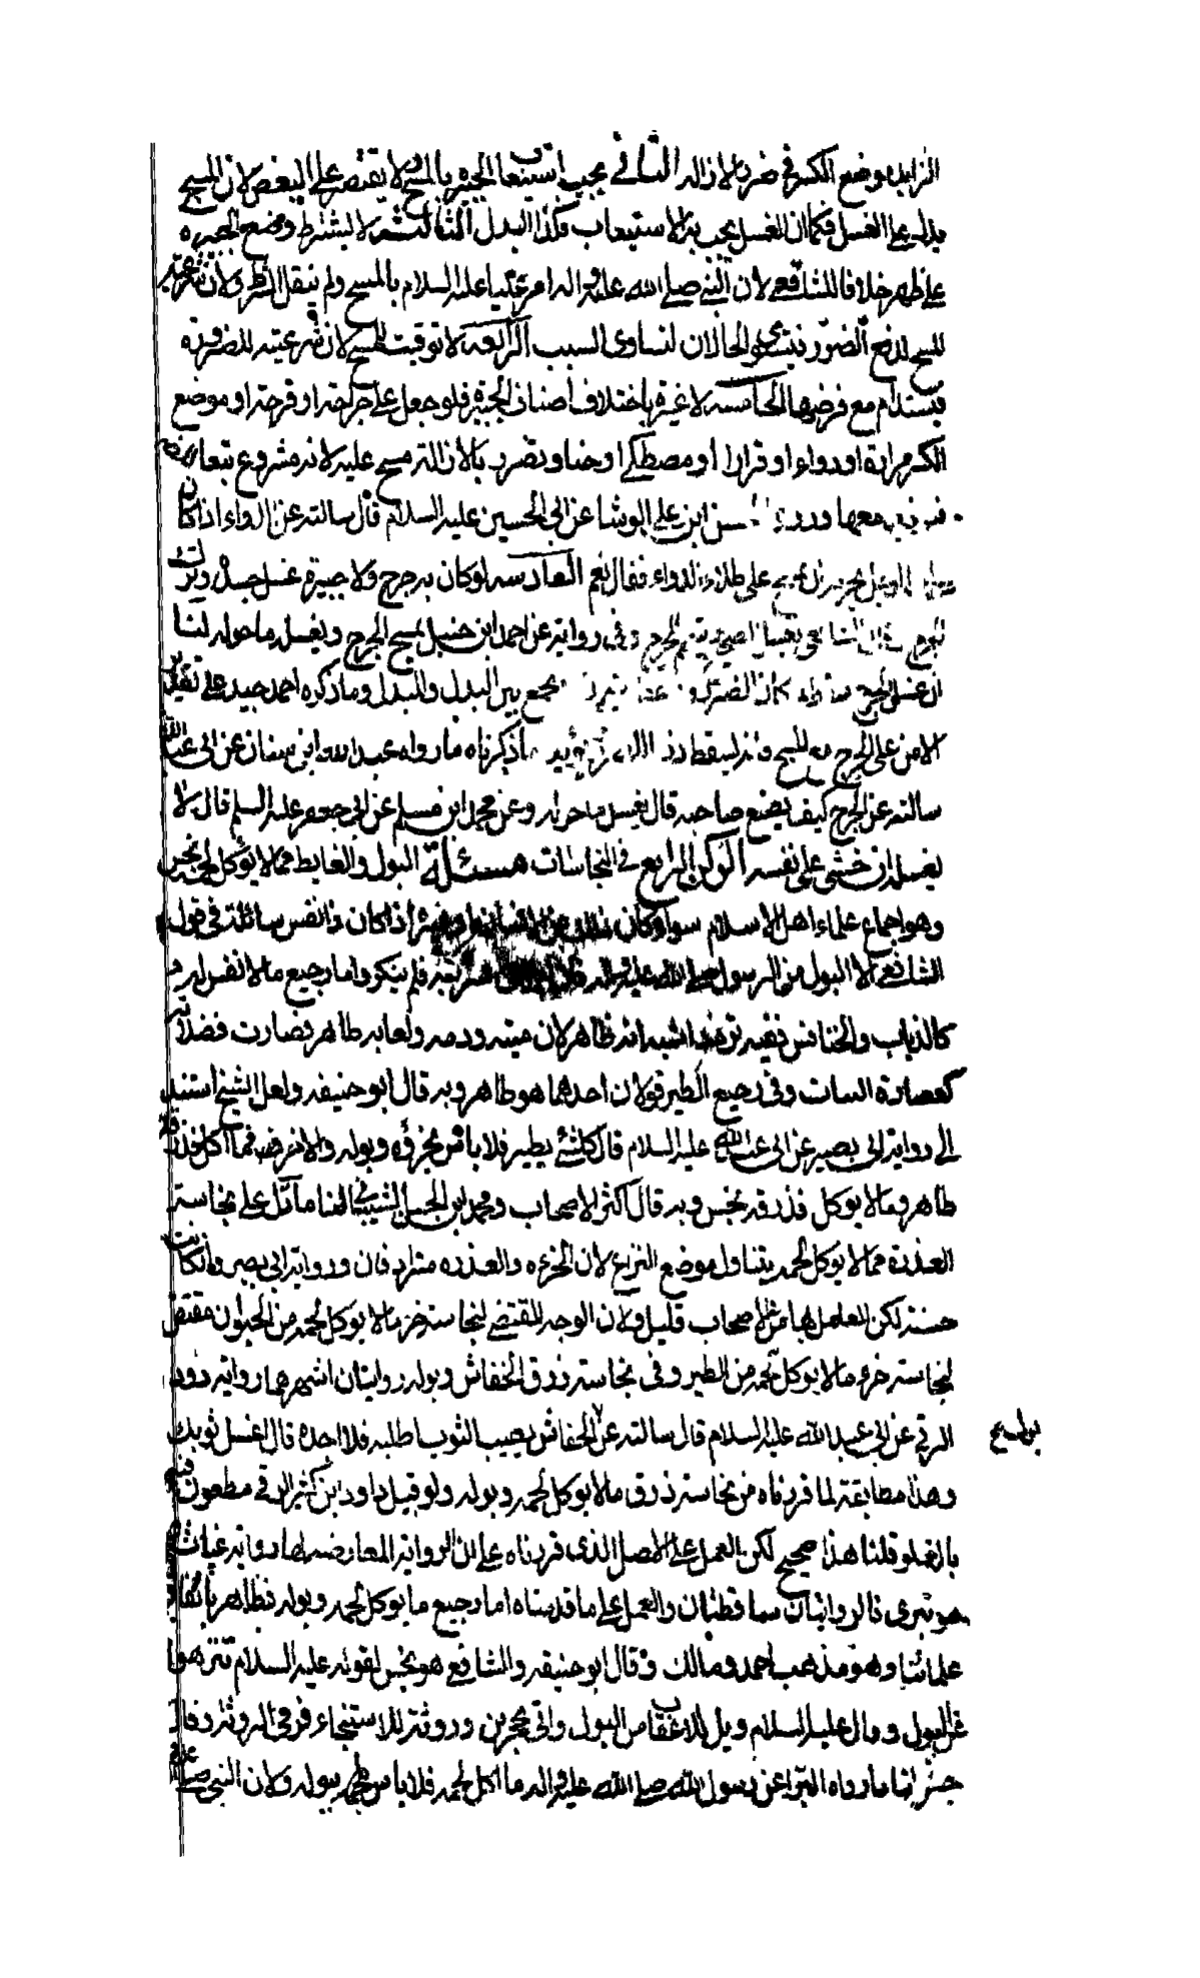 الزايد موضع الكسر في ضرر بالازاله الثاني يجب استيعاب الجبيرة بالمسح ولا يقتصر على البعض لان المسح
بدل عن الغسل فكما ان الغسل يجب به الاستيعاب فكذا البدل الثالثة لا يشترط وضع الجبيرة
على طهر خلافا للشافعي لان النبي صلى الله عليه واله امر عليا عليه السلام بالمسح ولم ينقل الشرط ولان شرعية
المسح لدفع الضرر فيتساوى الحالان لتساوى السبب الرابعة لا توقيت للمسح لان شرعيته للضرورة
فيستدام مع فرضها الخامسة لا عبرة باختلاف اصناف الجبيرة فلو جعل على جراحته او قرحته او موضع
الكسر مرارة او دواء او قرارا او مصطكى او حنا وتضرر بالازالة مسح عليه لانه مشروع تبعا
معها وروى الحسن ابن على الوشا عن ابي الحسين عليه السلام قال سالته عن الدواء اذا كان
يجزيه ان يمسح على طلاء الدواء فقال نعم السادسه لو كان به جرح ولا جبيرة غسل جسده وترك
الجرح وقال الشافعي يغسل الصحيح ويتيمم للجرح وفي رواية عن احمد ابن حنبل يمسح الجرح ويغسل ما حوله لنا
ان غسل الجرح يجمع بين البدل والمبدل وما ذكره احمد جيد على تقدير
الامن على الجرح مع المسح ما ذكرناه ما رواه عبد الله ابن سنان عن ابي عبد الله
سالته عن الجرح كيف يصنع صاحبه قال يغسل ما حوله وعن محمد ابن مسلم عن ابي جعفر عليه السلم قال لا
يغسله ان خشى على نفسه الركن الرابع في النجاسات مسئلة البول والغايط مما لا يؤكل لحمه نجس
وهو اجماع علماء اهل الاسلام سواء كان ذلك من الانسان او غيره اذا كان ذا نفس سائلة في قول
الشافعي الا البول من الرسول صلى الله عليه واله فلم ينكر واما رجيع ما لا نفس له
كالذباب والخنافس ففيه تردد اشبهه انه طاهر لان ميته ودمه ولعابه طاهر فصارت فضلاته
كعصارة النبات وفي رجيع الطير قولان احدهما هو طاهر وبه قال ابو حنيفه ولعل الشيخ استند
الى رواية ابي بصير عن ابي عبد الله عليه السلام قال كل شئ يطير فلا باس بخرؤه وبوله والاخر فما اكل فذرقه
طاهر وما لا يوكل فذرقه نجس وبه قال اكثر الاصحاب ومحمد ابن الحسن الشيباني لنا ما دل على نجاسة
العذرة مما لا يوكل لحمه يتناول موضع النزاع لان الخرء والعذره مترادفان ورواية ابي بصير وان كانت
حسنة لكن العامل بها من الاصحاب قليل ولان الوجه المقتضي لنجاسة خرء ما لا يوكل لحمه من الحيوان مقتض
لنجاسة خرء ما لا يوكل لحمه من الطير وفي نجاسة زرق الخفاش وبوله روايتان اشهرهما رواية داود
الرقي عن ابي عبد الله عليه السلام قال سالته عن الخفاش يصيب الثوب اطلبه فلا اجده قال اغسل ثوبك
وهذا مطابقة لما قررناه من نجاسة ذرق ما لا يوكل لحمه وبوله ولو قيل داود ابن كثير الرقي مطعون فيه
بالغلو قلنا هذا صحيح لكن العمل على الاصل الذي قررناه على ان الرواية المعارضه لها رواية غياث
هو بتري فالروايتان ساقطتان والعمل على ما قدمناه اما رجيع ما يوكل لحمه وبوله فطاهر باتفاق
علمائنا وهو مذهب احمد ومالك وقال ابو حنيفه والشافعي هو نجس لقوله عليه السلام تنزهوا
عن البول وقال عليه السلام ويل للاعقاب من البول واتى بحجرين وروثة للاستنجاء فرمى الروثة وقال
رجس لنا ما رواه البراء عن رسول الله صلى الله عليه واله ما اكل لحمه فلا باس ببوله ولان النبي صلى الله عليه